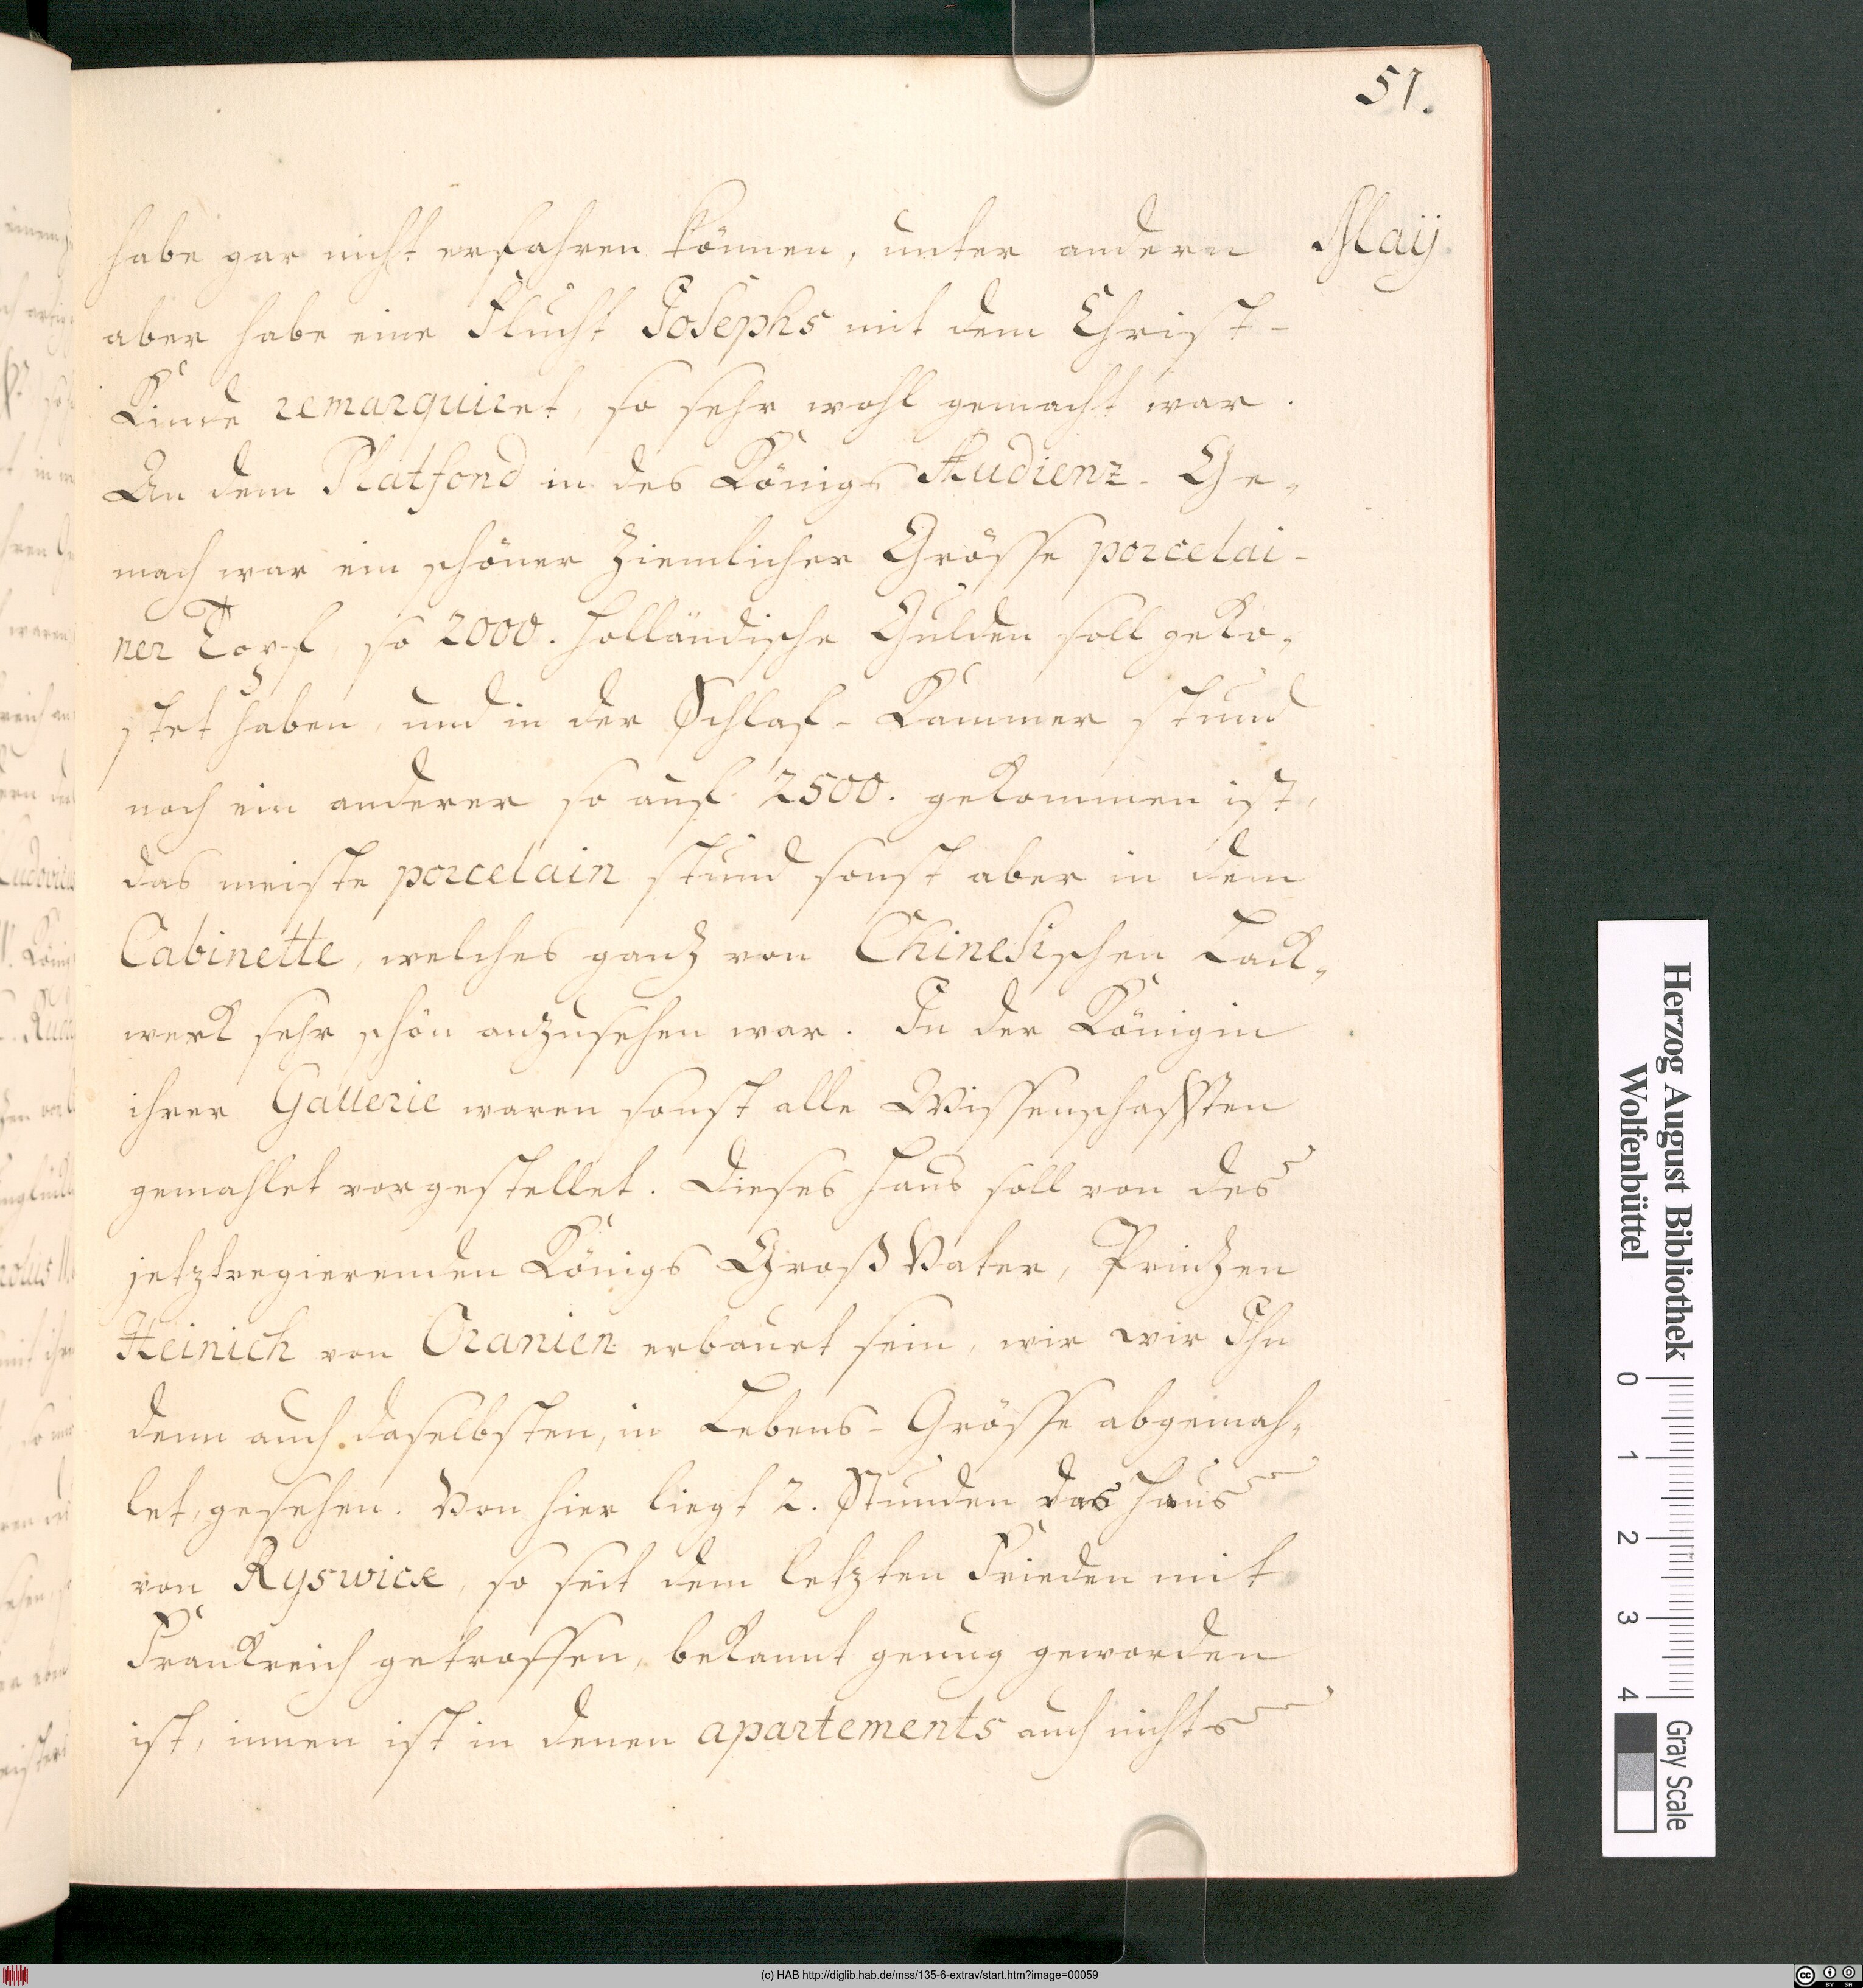 51.
Maij
habe gar nicht erfahren können, unter andern
aber habe eine Flucht Josephs mit dem Christ-
Kinde remarquiret, so sehr wohl gemacht war.
An dem Platfond in des Königs Audienz-Ge-
mach war ein schöner ziemlicher Grösse porcelai-
ner Topf, so 2000. Holländische Gulden soll geko-
stet haben, und in der Schlaf-Kammer stund
noch ein anderer so auf 2500. gekommen ist,
das meiste porcelain stund sonst aber in dem
Cabinette, welches ganz von Chinesischen Lack-
werk sehr schön anzusehen war. In der Königin
ihrer Gallerie waren sonst alle Wissenschafften
gemahlet vorgestellet. Dieses Haus soll von des
jetztregierenden Königs Groß Vater, Prinzen
Heinich von Oranien erbauet sein, wie wir Ihn
denn auch daselbsten, in Lebens-Grösse abgemah-
let, gesehen. Von hier liegt 2. Stunden das Haus
von Ryswick, so seit dem letzten Frieden mit
Frankreich getroffen, bekannt genug geworden
ist, innen ist in denen apartements auch nichts
Herzog August Bibliothek
Wolfenbüttel
0 1 2 3 4
Gray Scale
(c) HAB http://diglib.hab.de/mss/135-6-extrav/start.htm?image=00059